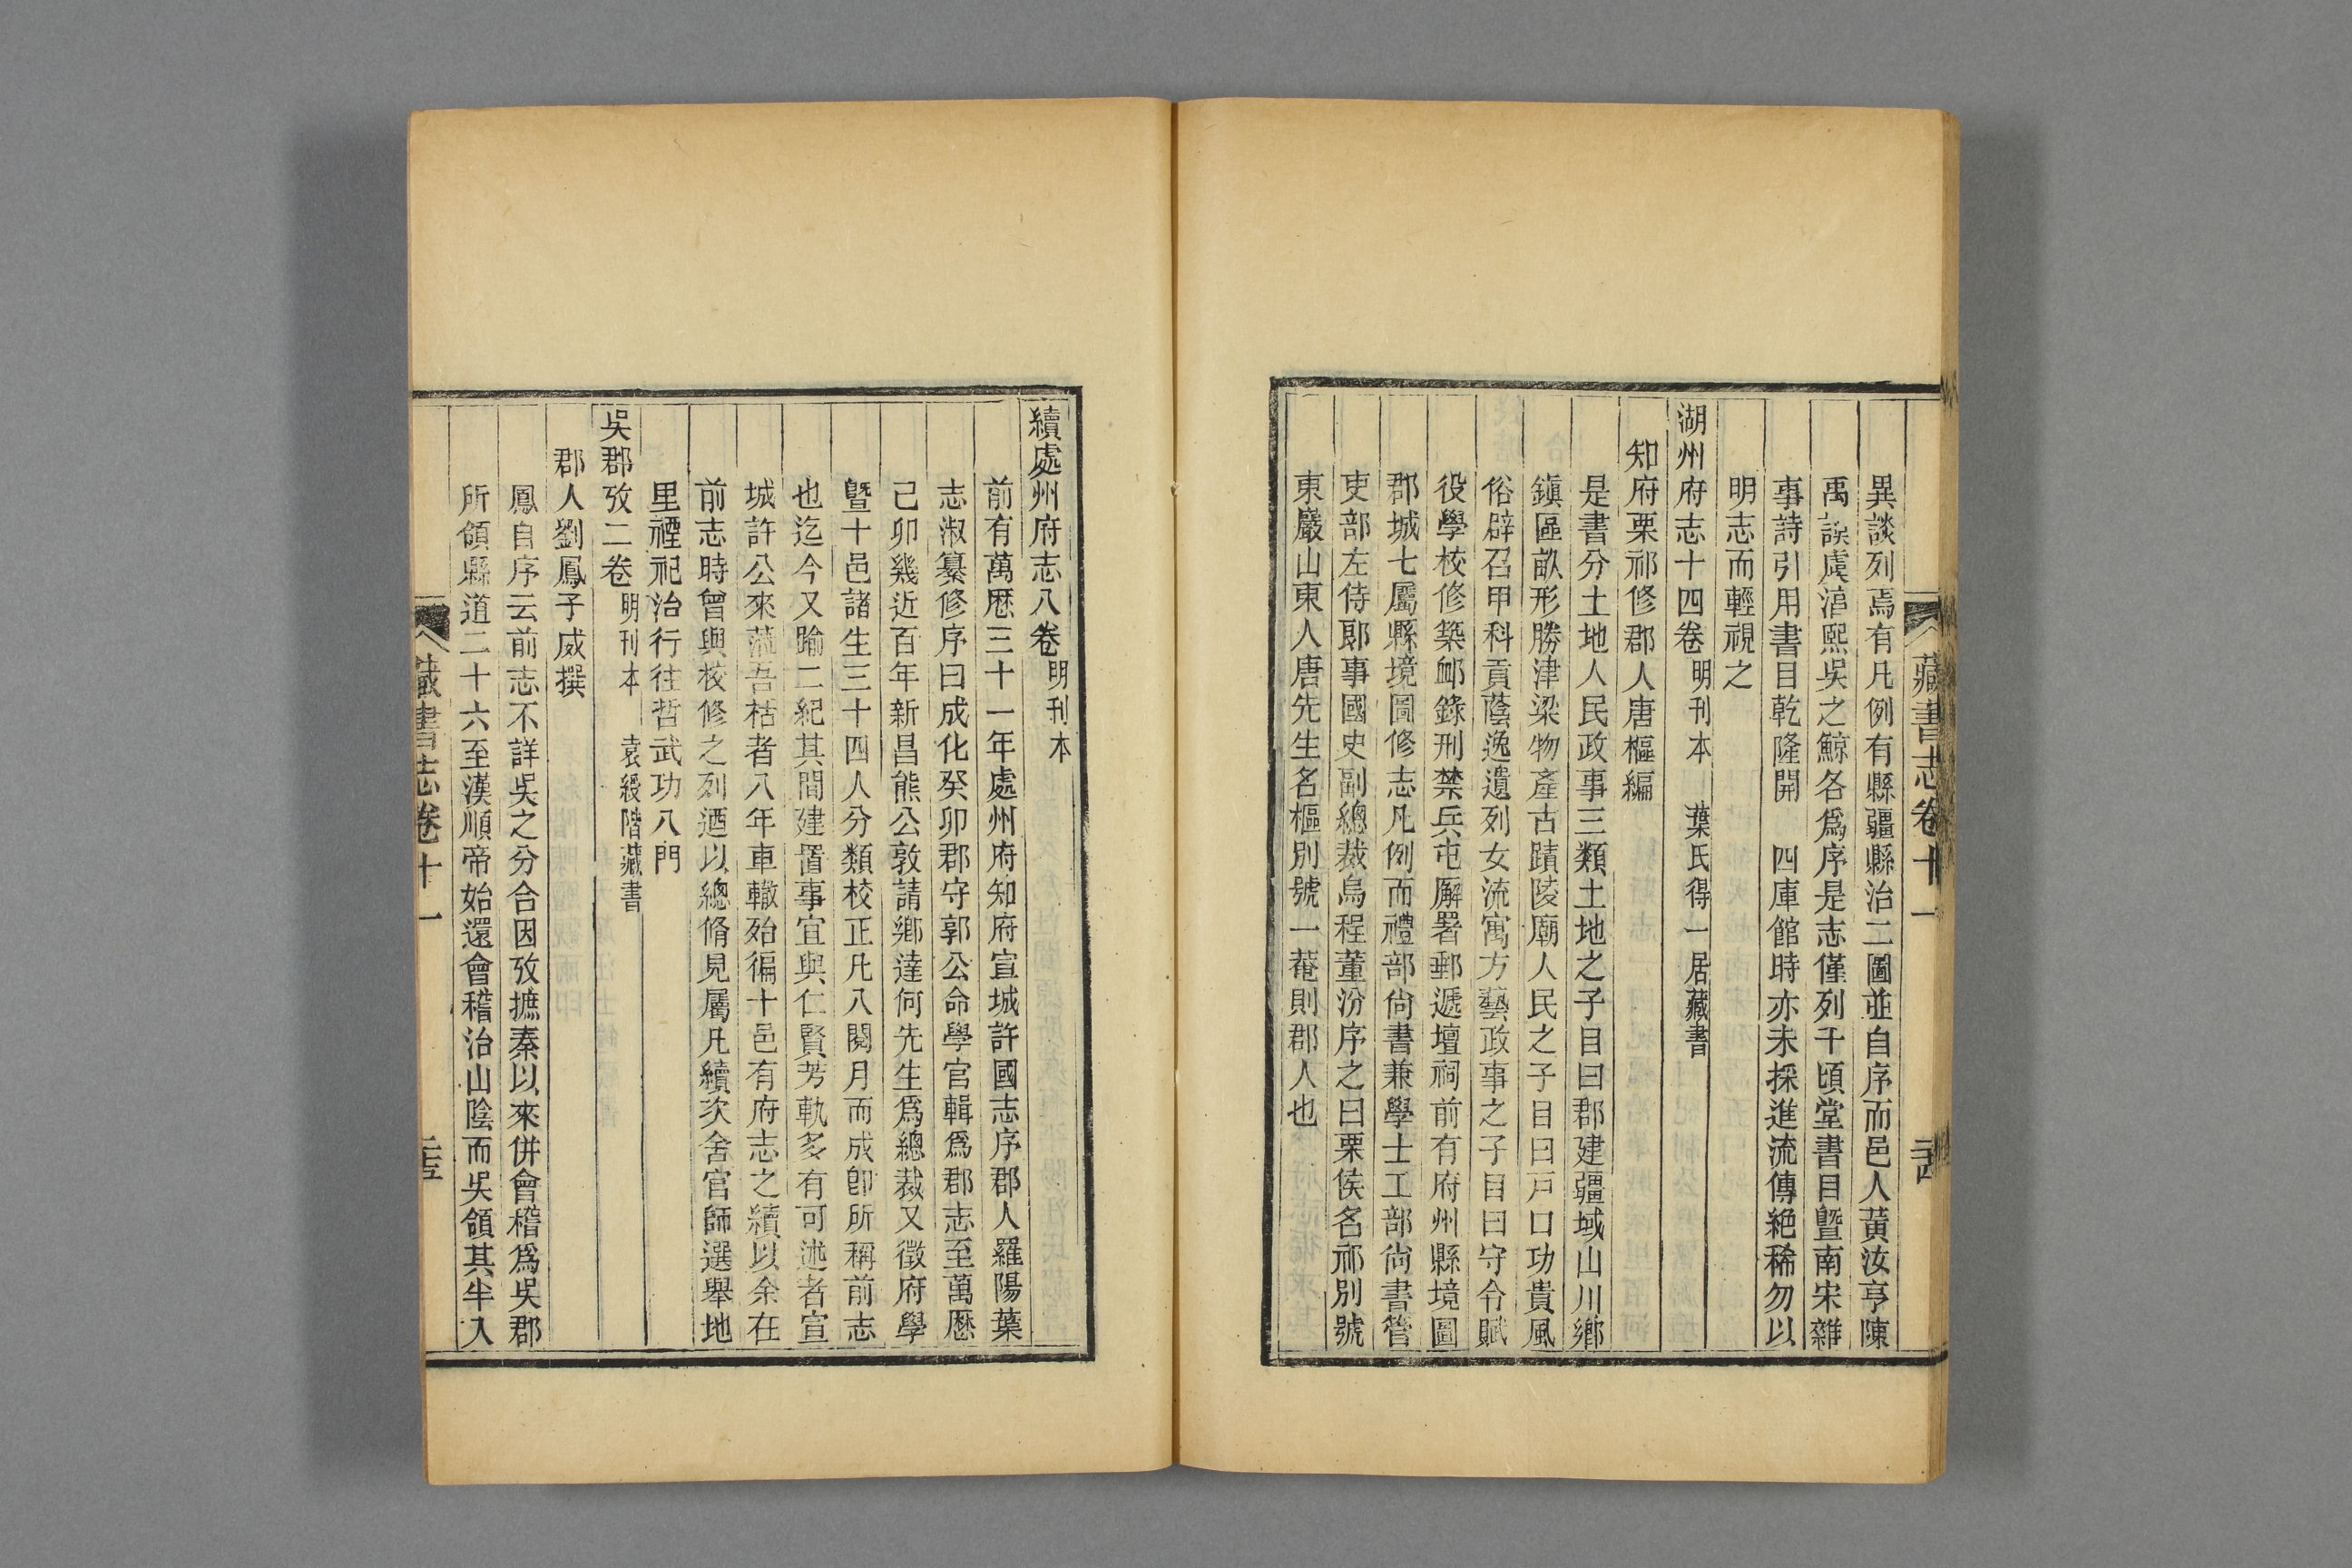 藏書志卷十一
異談列焉有凡例有縣疆縣治二圖並自序而邑人黃汝亨陳
禹謨虞淯熙吳之鯨各爲序是志僅列千頃堂書目曁南宋雜
事詩引用書目乾隆開　四庫館時亦未採進流傳絕稀勿以
明志而輕視之
湖州府志十四卷明刊本　葉氏得一居藏書
知府栗祁修郡人唐樞編
是書分土地人民政事三類土地之子目曰郡建疆域山川鄉
鎭區畝形勝津梁物產古蹟陵廟人民之子目曰戸口功貴風
俗辟召甲科貢蔭逸遺列女流寓方藝政事之子目曰守令賦
役學校修築卹錄刑禁兵屯廨署郵遞壇祠前有府州縣境圖
郡城七屬縣境圖修志凡例而禮部尙書兼學士工部尙書管
吏部左侍郞事國史副總裁烏程董汾序之曰栗侯名祁別號
東巖山東人唐先生名樞別號一菴則郡人也
續處州府志八卷明刊本
前有萬厯三十一年處州府知府宣城許國志序郡人羅陽葉
志淑纂修序曰成化癸卯郡守郭公命學官輯爲郡志至萬厯
己卯幾近百年新昌熊公敦請鄉達何先生爲總裁又徵府學
曁十邑諸生三十四人分類校正凡八閱月而成卽所稱前志
也迄今又踰二紀其間建置事宜與仁賢芳軌多有可述者宣
城許公來蒞吾栝者八年車轍殆徧十邑有府志之續以余在
前志時曾與校修之列迺以總脩見屬凡續次舍官師選舉地
里禋祀治行往哲武功八門
吳郡攷二卷明刊本　袁綬階藏書
郡人劉鳳子威撰
鳳自序云前志不詳吳之分合因攷摭秦以來併會稽爲吳郡
所領縣道二十六至漢順帝始還會稽治山陰而吳領其半入
藏書志卷十一